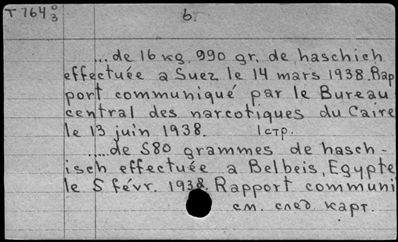 T 764 0/3
6.
...de 16 kg 990 gr. de haschich
effectuée a Suez le 14 mars 1938. Rap
port communiqué par le Bureau
central des narcotiques du Caire
le 13 juin 1938. 1 стр.
.....de 580 grammes de hasch-
isch effectuée a Belbeis, Egypte
le 5 févr. 1938. Rapport communi
см. след карт.